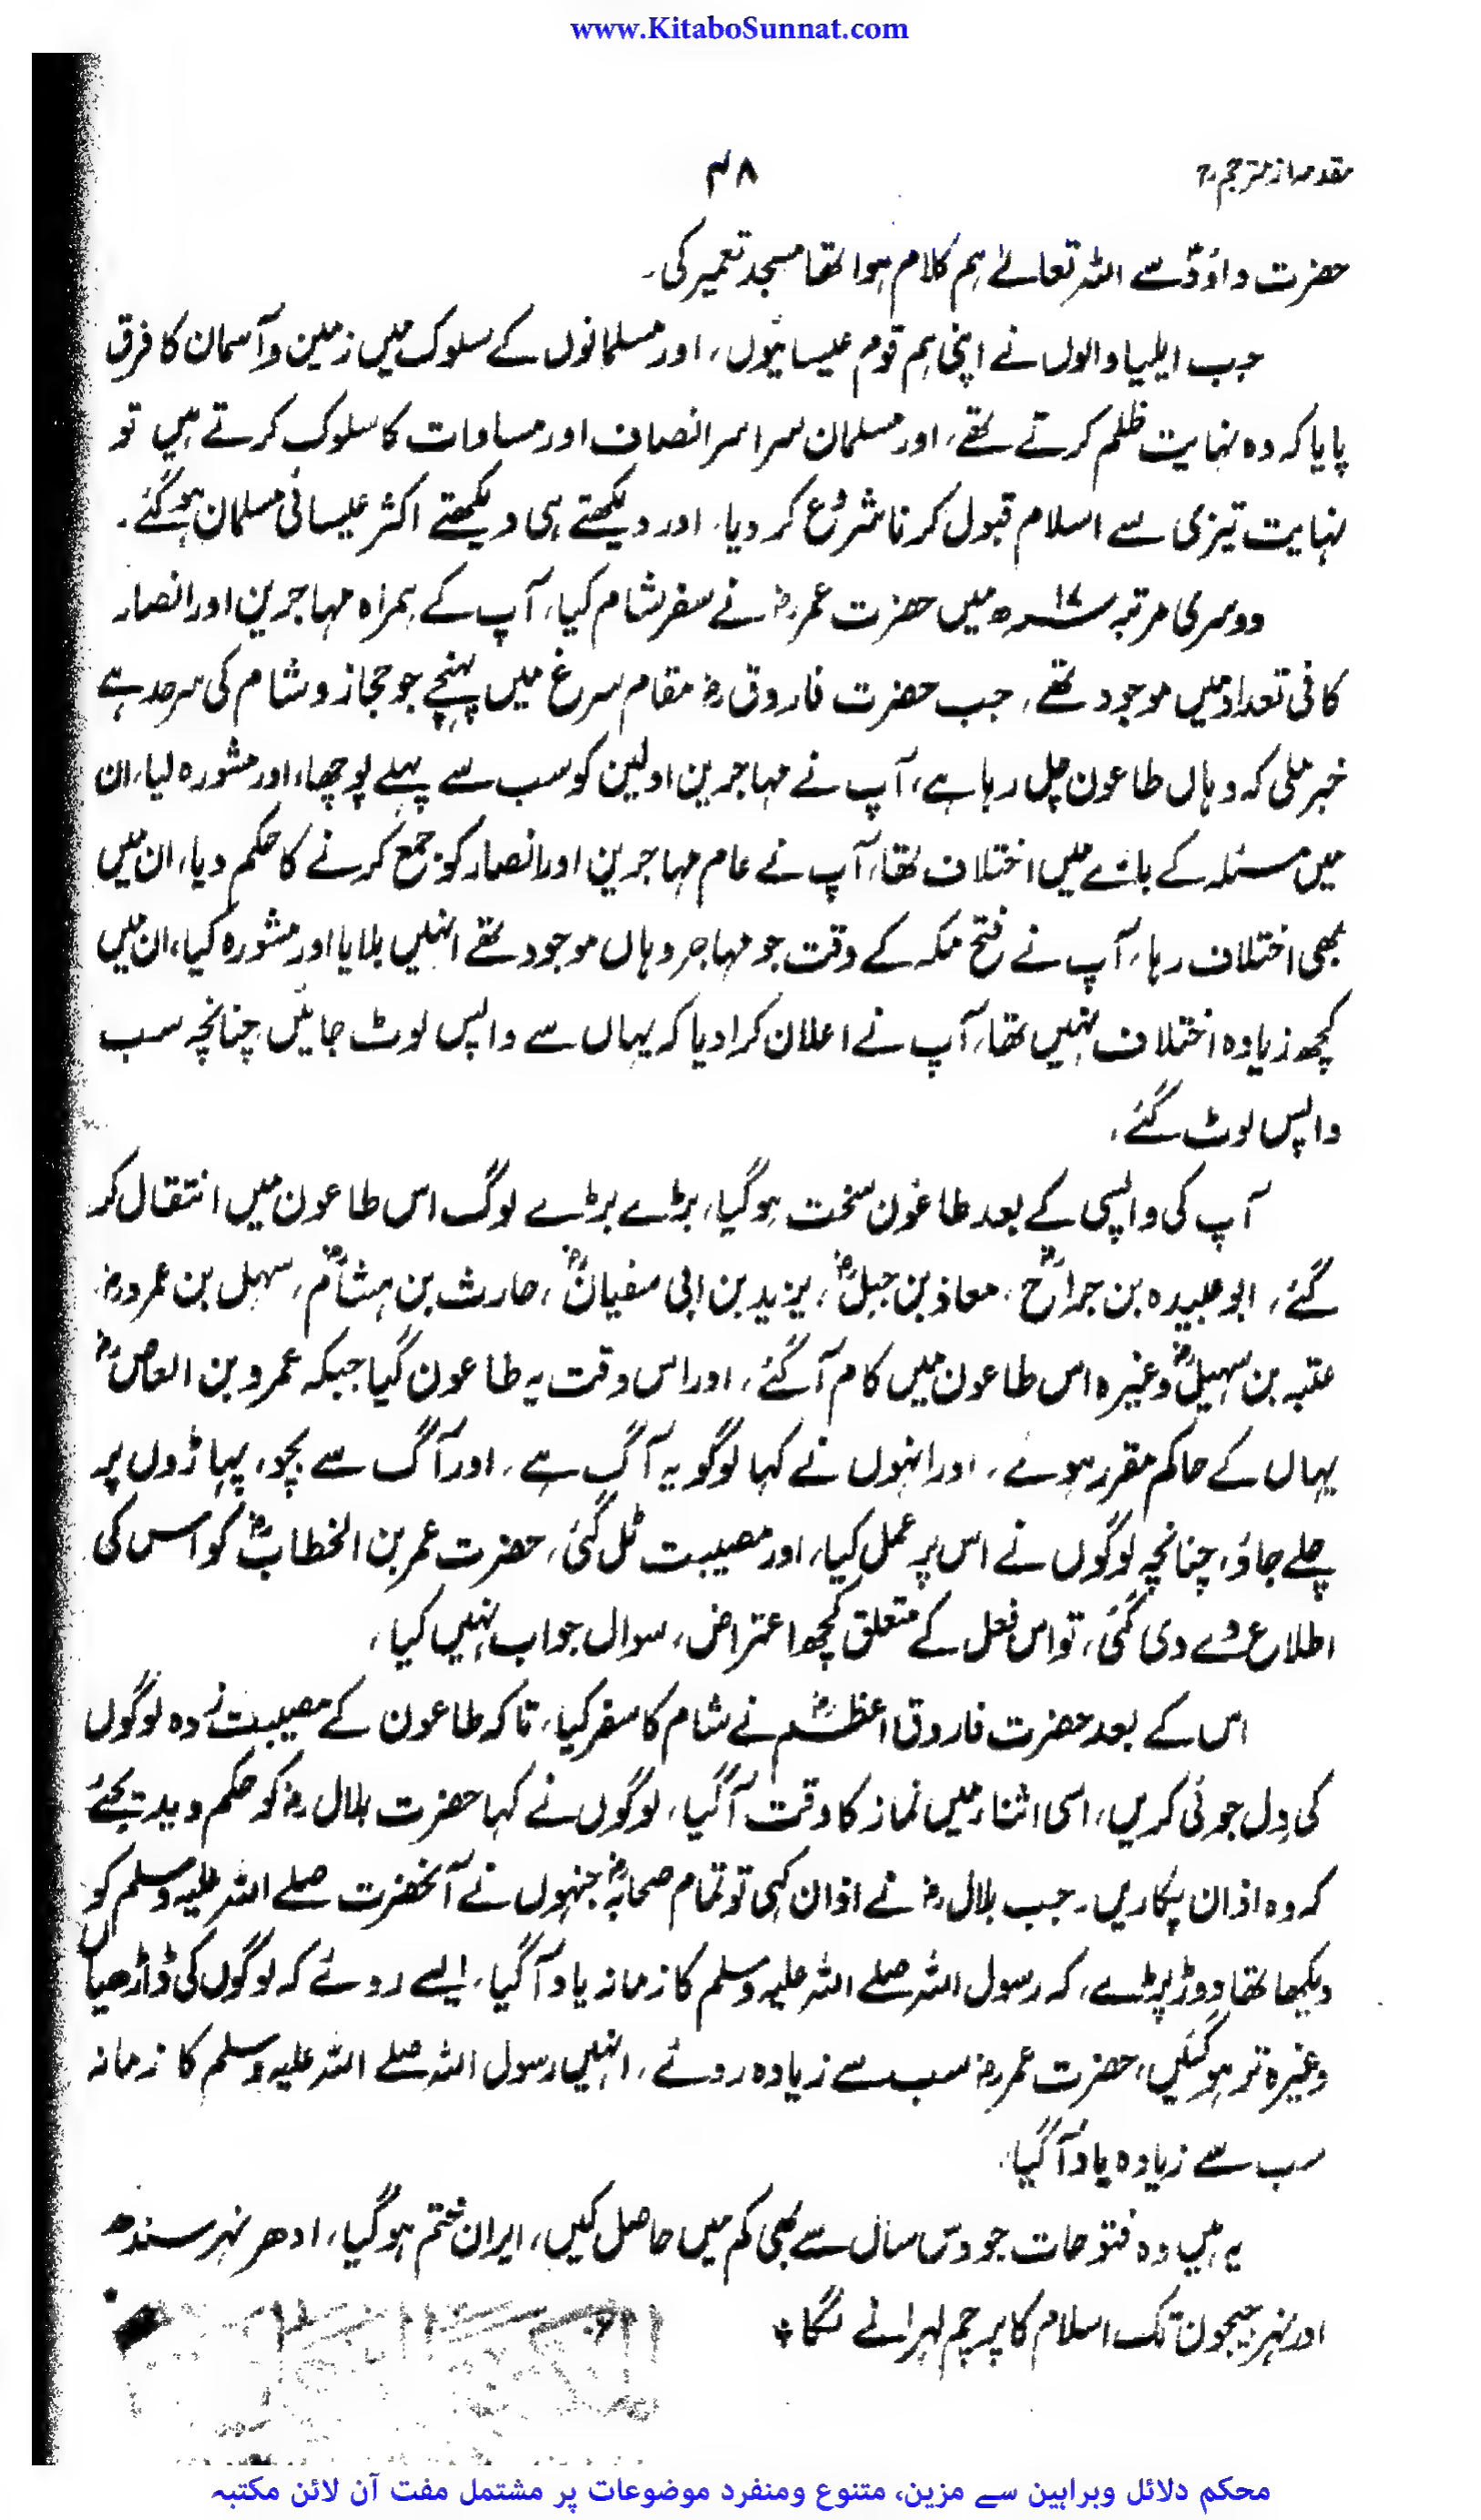 www.KitaboSunnat.com
مقدمہ از مترجم
۴۸
حضرت داؤدؑ سے اللہ تعالےٰ ہم کلام ہوا تھا مسجد تعمیر کی۔
جب ایلیا والوں نے اپنی ہم قوم عیسائیوں، اور مسلمانوں کے سلوک میں زمین و آسمان کا فرق
پایا کہ وہ نہایت ظلم کرتے تھے، اور مسلمان سراسر انصاف اور مساوات کا سلوک کرتے ہیں تو
نہایت تیزی سے اسلام قبول کرنا شروع کر دیا، اور دیکھتے ہی دیکھتے اکثر عیسائی مسلمان ہو گئے۔
دوسری مرتبہ ۱۷ھ میں حضرت عمرؓ نے سفر شام کیا، آپ کے ہمراہ مہاجرین اور انصار
کافی تعداد میں موجود تھے، جب حضرت فاروقؓ مقام سرغ میں پہنچے جو حجاز و شام کی سرحد ہے
خبر ملی کہ وہاں طاعون چل رہا ہے، آپ نے مہاجرین اولین کو سب سے پہلے پوچھا، اور مشورہ لیا، ان
میں مسئلہ کے بارے میں اختلاف تھا، آپ نے عام مہاجرین اور انصار کو جمع کرنے کا حکم دیا، ان میں
بھی اختلاف رہا، آپ نے فتح مکہ کے وقت جو مہاجر وہاں موجود تھے انہیں بلایا اور مشورہ کیا، ان میں
کچھ زیادہ اختلاف نہیں تھا، آپ نے اعلان کرا دیا کہ یہاں سے واپس لوٹ جائیں چنانچہ سب
واپس لوٹ گئے،
آپ کی واپسی کے بعد طاعون سخت ہو گیا، بڑے بڑے لوگ اس طاعون میں انتقال کر
گئے، ابو عبیدہ بن جراحؓ، معاذ بن جبلؓ، یزید بن ابی سفیانؓ، حارث بن ہشامؓ، سہل بن عمروؓ،
عتبہ بن سہیلؓ وغیرہ اس طاعون میں کام آ گئے، اور اس وقت یہ طاعون گیا جبکہ عمرو بن العاصؓ
یہاں کے حاکم مقرر ہوئے، اور انہوں نے کہا لوگو یہ آگ ہے، اور آگ سے بچو، پہاڑوں پر
چلے جاؤ، چنانچہ لوگوں نے اس پر عمل کیا، اور مصیبت ٹل گئی، حضرت عمر بن الخطابؓ کو اس کی
اطلاع دے دی گئی، تو اس فعل کے متعلق کچھ اعتراض، سوال جواب نہیں کیا،
اس کے بعد حضرت فاروق اعظمؓ نے شام کا سفر کیا، تاکہ طاعون کے مصیبت زدہ لوگوں
کی دل جوئی کریں، اسی اثناء میں نماز کا وقت آ گیا، لوگوں نے کہا حضرت بلالؓ کو حکم دیدیجئے
کہ وہ اذان پکاریں۔ جب بلالؓ نے اذان کہی تو تمام صحابہؓ جنہوں نے آنحضرت صلے اللہ علیہ وسلم کو
دیکھا تھا دوڑ پڑے، کہ رسول اللہ صلے اللہ علیہ وسلم کا زمانہ یاد آ گیا، ایسے روئے کہ لوگوں کی ڈاڑھیاں
وغیرہ تر ہو گئیں، حضرت عمرؓ سب سے زیادہ روئے، انہیں رسول اللہ صلے اللہ علیہ وسلم کا زمانہ
سب سے زیادہ یاد آ گیا،
یہ ہیں وہ فتوحات جو دس سال سے بھی کم میں حاصل کیں، ایران ختم ہو گیا، ادھر نہر سندھ
اور نہر جیحون تک اسلام کا پرچم لہرانے لگا ؞
محکم دلائل وبراہین سے مزین، متنوع ومنفرد موضوعات پر مشتمل مفت آن لائن مکتبہ